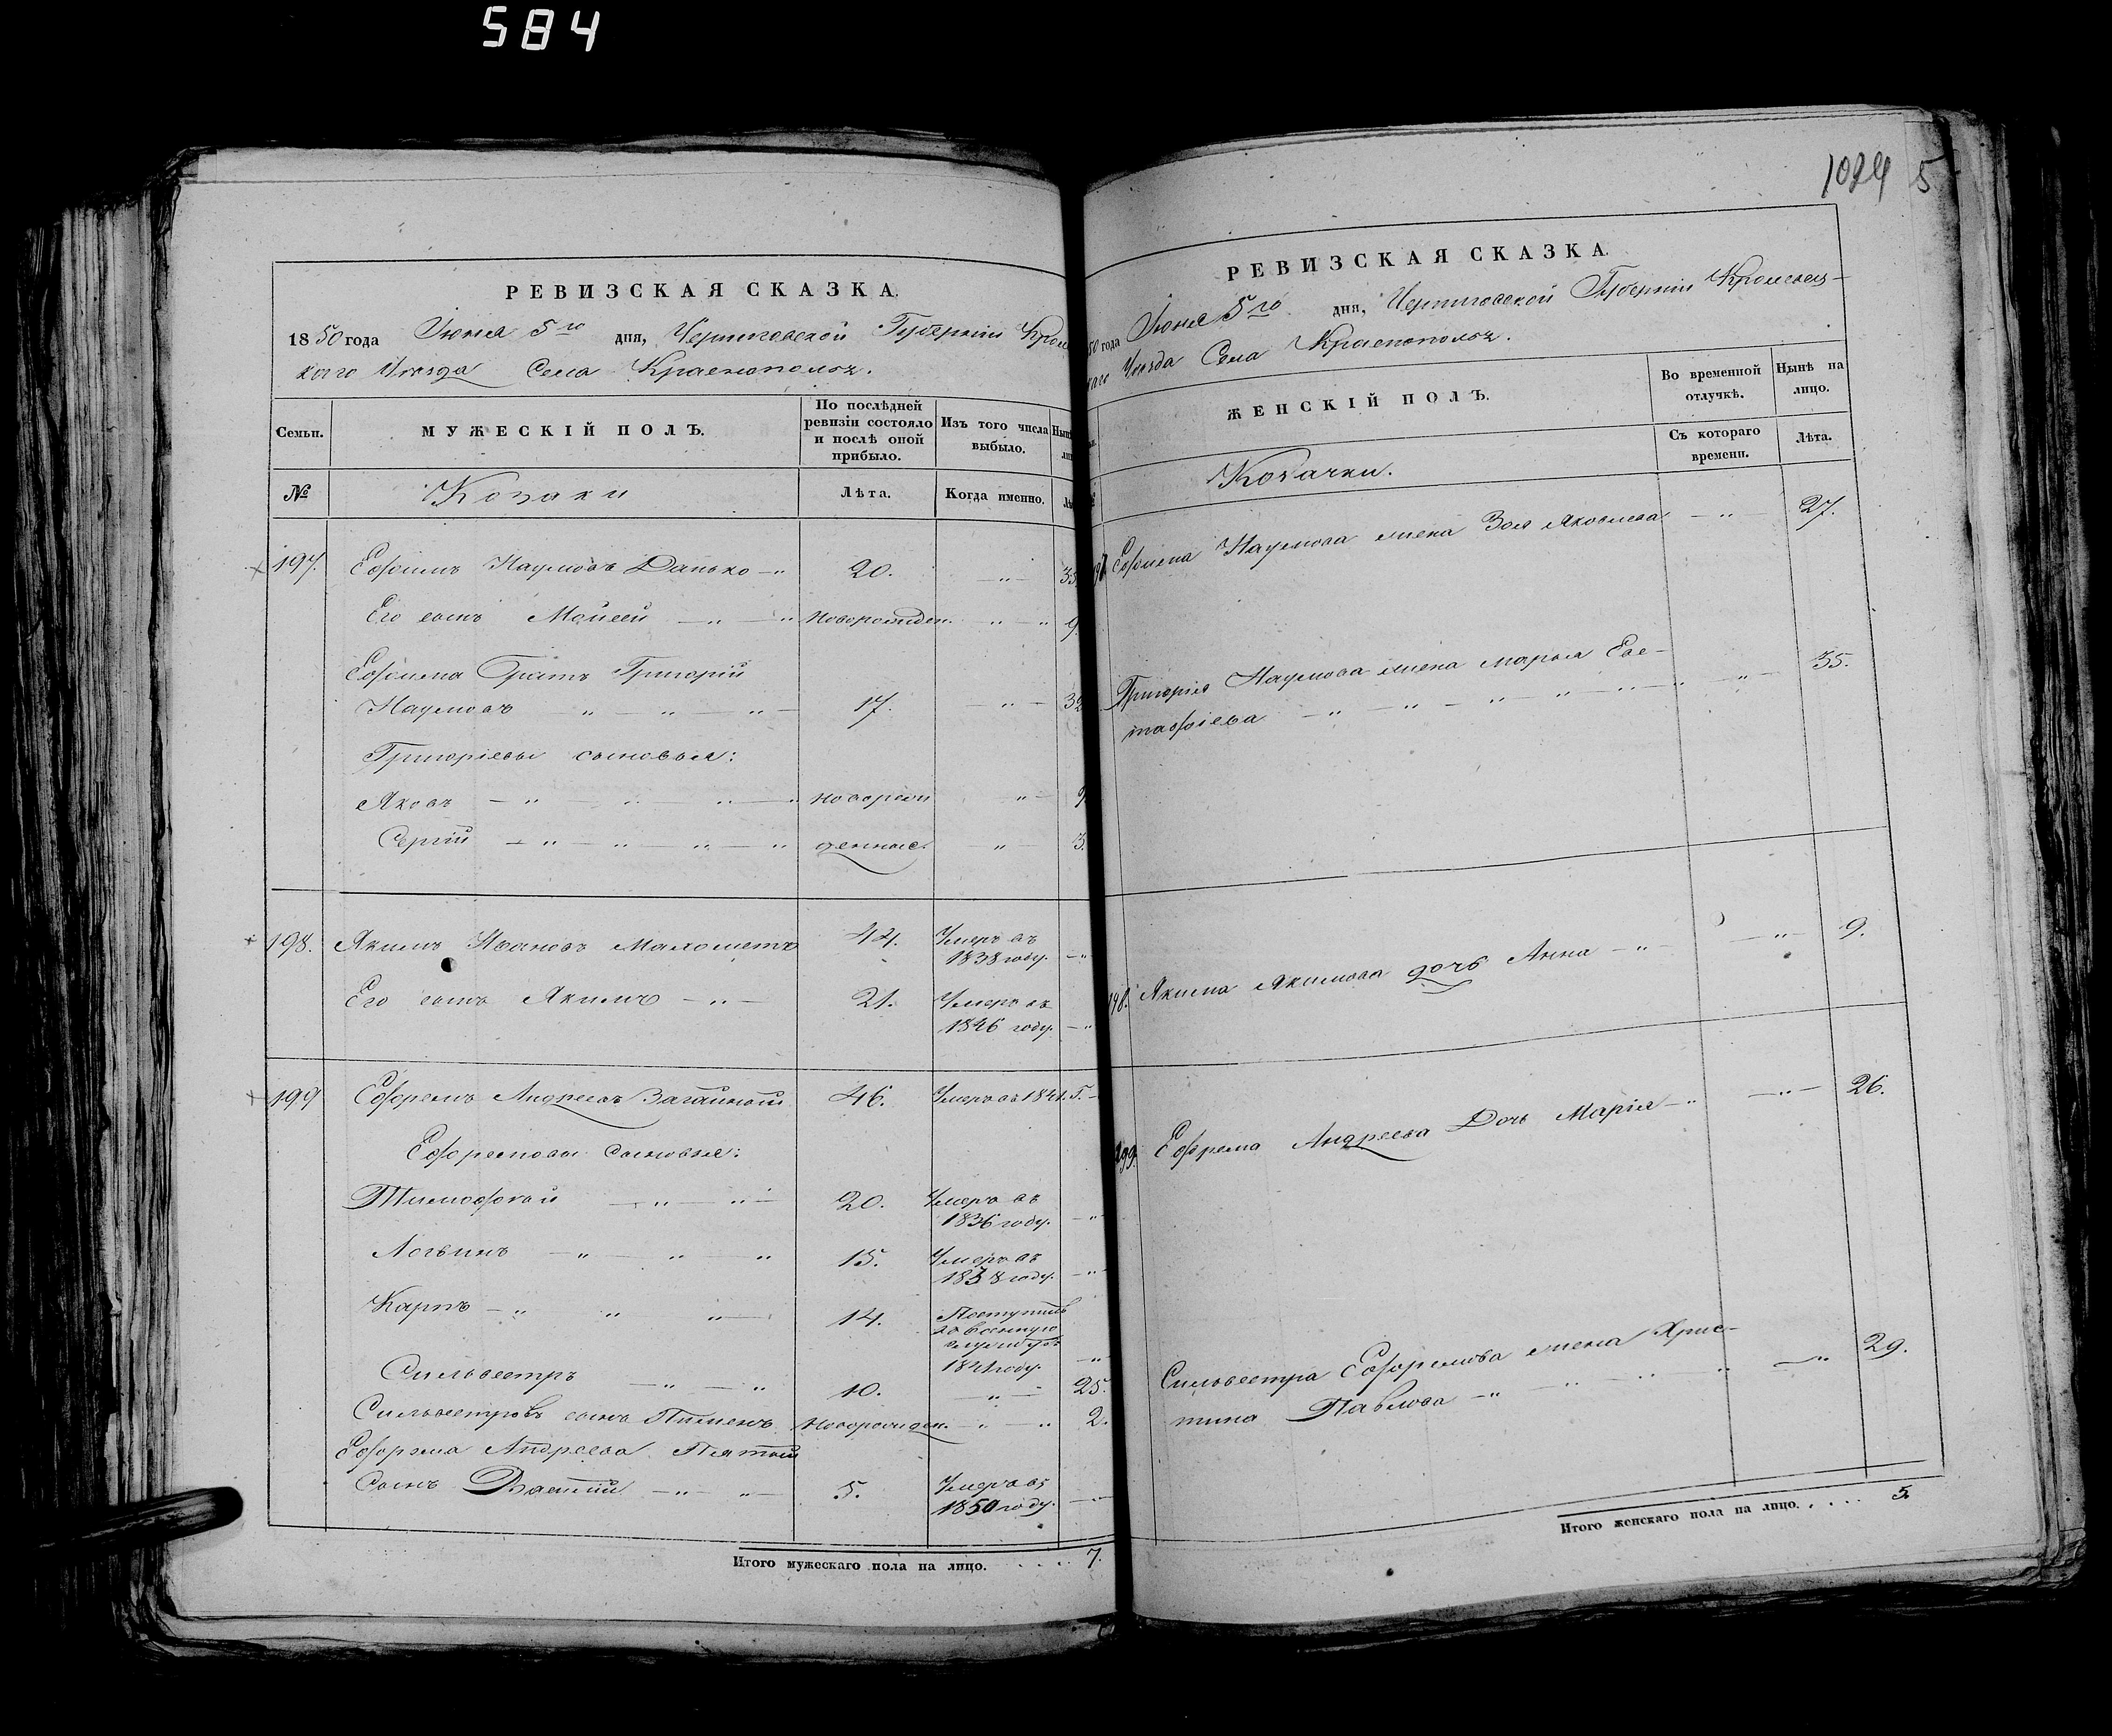 584
РЕВИЗСКАЯ СКАЗКА.
1850 года Іюня 5го дня, Черниговской Губерніи Крол
каго Уѣзда Села Краснополья.
Семьи.
МУЖЕСКІЙ ПОЛЪ.
По послѣдней ревизіи состояло и послѣ оной прибыло.
Изъ того числа выбыло.
№
Козаки
Лѣта.
Когда именно.
197. Ефимъ Наумовъ Данько — „ 20. — „ — 35.
Его сынъ Мойсей — „ — „ новорожден. „ — „ 9.
Ефима братъ Григорій
Наумовъ „ — „ — „ — 17. — „ — 32
Григоріевы сыновья:
Яковъ — „ — „ „ — „ новорож „ — 9
Сергій — „ — „ — „ — „ денные. — „ — 3.
198. Якимъ Ивановъ 44. Умеръ въ
1838 году. — „
Его сынъ Якимъ — „ — 21. Умеръ въ
1846 году. — „
199 Ефремъ Андреевъ 46. Умеръ въ 1841. Г. —
Ефремовы сыновья:
Тимофѣй — „ — „ — 20. Умеръ въ
1836 году. — „
Логвинъ — „ — „ — „ 15. Умеръ въ
1838 году. — „
Карпъ — „ „ „ — 14. Поступилъ
въ военную
службу въ
1841 году. — „
Сильвестръ — „ — „ 10. — „ — 25.
Сильвестровъ сынъ Пименъ новорожден. — „ — „ 2.
Ефрема Андреева Пятый
Сынъ Василій — „ — „ — 5. Умеръ въ
1850 году. — „
Итого мужескаго пола на лицо. . . . . 7.
1024 5
РЕВИЗСКАЯ СКАЗКА.
50 года Іюня 5го дня, Черниговской Губерніи Кролевец-
каго Уѣзда Села Краснополья.
ЖЕНСКІЙ ПОЛЪ.
Во временной отлучкѣ.
Нынѣ на лицо.
Съ котораго времени.
Лѣта.
Козачки.
Ефима Наумова жена Зоя Яковлева — „ — 27.
Григорія Наумова жена Марья Евс-
тафіева — „ — „ — „ — „ — „ — „ — 35.
198. Якима Якимова дочь Анна — „ — — „ — 9.
199. Ефрема Андреева Дочь Марія — „ — „ — 26.
Сильвестра Ефремова жена Хрис-
тина Павлова — „ — „ — „ — „ 29.
Итого женскаго пола на лицо. . . . . 5.